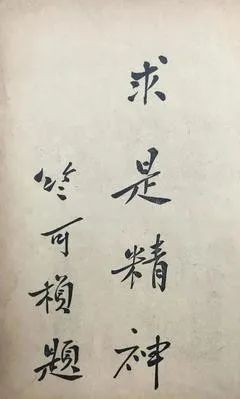 求是精神
竺可桢题